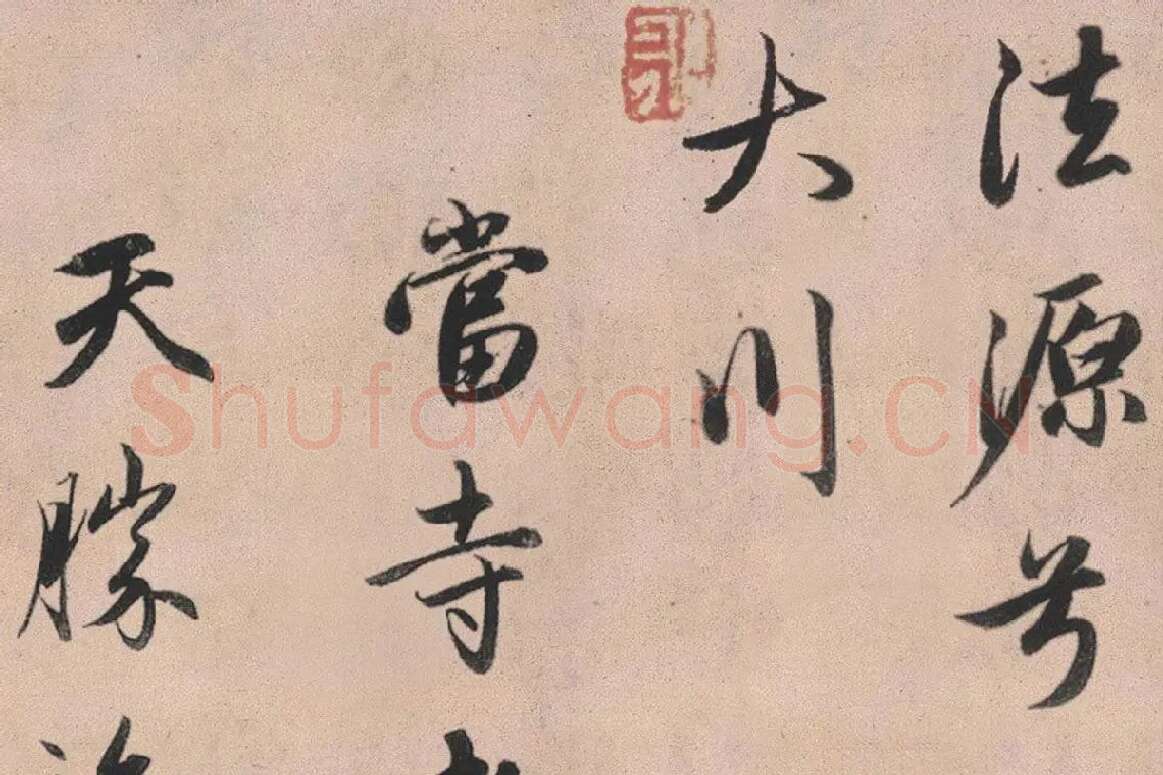 法源号
大川
當寺
天勝
Shufawang.CN